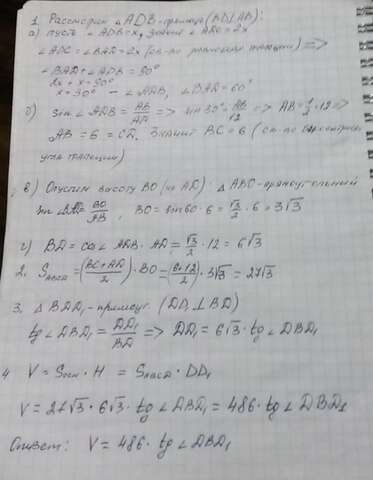 1. Рассмотрим ∠ADB - прямоуг (BD⊥AB):
а) пусть ∠ADB = x, значит ∠ADC = 2x
∠ADC = ∠BAD = 2x (св-во трапеции) =>
∠BAD + ∠ADB = 90°
2x + x = 90°
x = 30° - ∠ADB, ∠BAD = 60°
б) sin ∠ADB = AB/AD => sin 30° = AB/12 => AB = 1/2 · 12 =>
AB = 6 = CD. Значит BC = 6 (св-во
трапеции)
в) Опустим высоту BO (на AD): △ABO - прямоугольный
sin ∠A = BO/AB, BO = sin 60 · 6 = √3/2 · 6 = 3√3
г) BD = cos ∠ADB · AD = √3/2 · 12 = 6√3
2. SABCD = (BC+AD/2) · BO = (6+12/2) · 3√3 = 27√3
3. △BDD₁ - прямоуг. (DD₁⊥BD)
tg ∠DBD₁ = DD₁/BD => DD₁ = 6√3 · tg ∠DBD₁
4 V = Sосн · H = SABCD · DD₁
V = 27√3 · 6√3 · tg ∠DBD₁ = 486 · tg ∠DBD₁
Ответ: V = 486 · tg ∠DBD₁